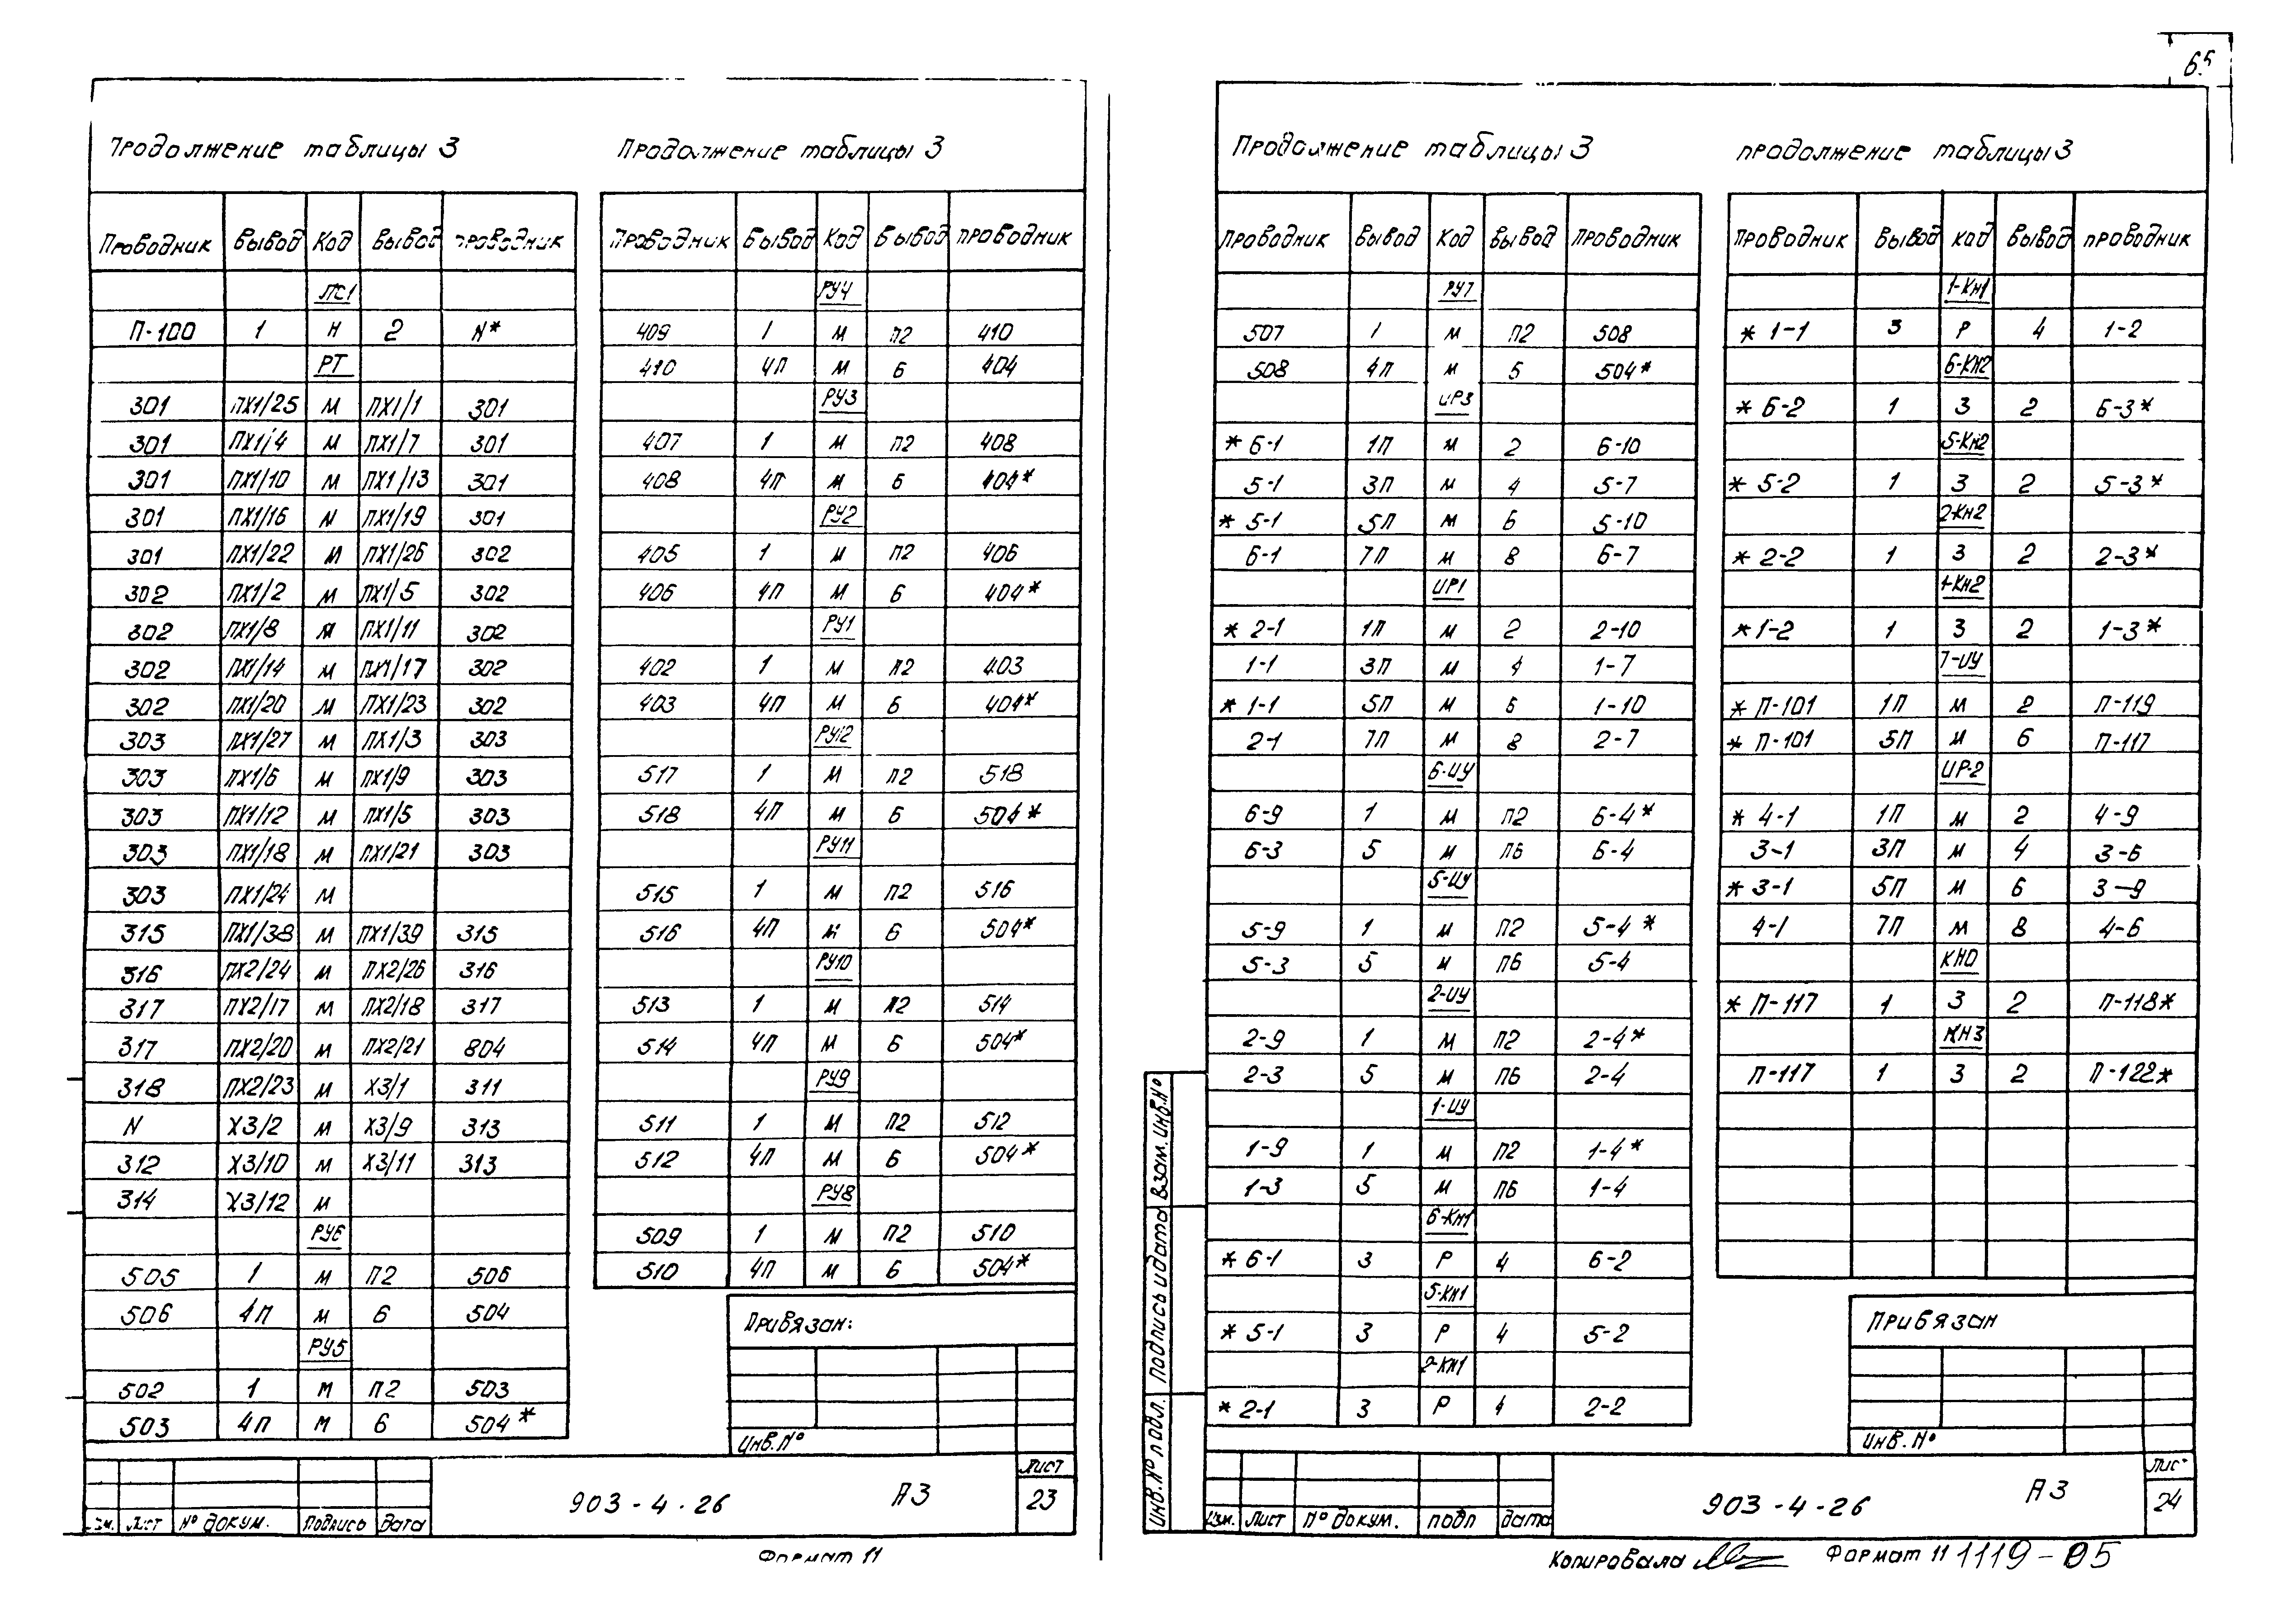 65
Продолжение таблицы 3
Проводник Вывод Код Вывод проводник
ЛС1
П-100 1 Н 2 N*
РТ
301 ПХ1/25 М ПХ1/1 301
301 ПХ1/4 М ПХ1/7 301
301 ПХ1/10 М ПХ1/13 301
301 ПХ1/16 М ПХ1/19 301
301 ПХ1/22 М ПХ1/26 302
302 ПХ1/2 М ПХ1/5 302
302 ПХ1/8 М ПХ1/11 302
302 ПХ1/14 М ПХ1/17 302
302 ПХ1/20 М ПХ1/23 302
303 ПХ1/27 М ПХ1/3 303
303 ПХ1/6 М ПХ1/9 303
303 ПХ1/12 М ПХ1/5 303
303 ПХ1/18 М ПХ1/21 303
303 ПХ1/24 М
315 ПХ1/38 М ПХ1/39 315
316 ПХ2/24 М ПХ2/26 316
317 ПХ2/17 М ПХ2/18 317
317 ПХ2/20 М ПХ2/21 804
318 ПХ2/23 М Х3/1 311
N Х3/2 М Х3/9 313
312 Х3/10 М Х3/11 313
314 Х3/12 М
РУ6
505 1 М П2 506
506 4П М 6 504
РУ5
502 1 М П2 503
503 4П М 6 504*
Продолжение таблицы 3
Проводник Вывод Код Вывод проводник
РУ4
409 1 М П2 410
410 4П М 6 404
РУ3
407 1 М П2 408
408 4П М 6 404*
РУ2
405 1 М П2 406
406 4П М 6 404*
РУ1
402 1 М П2 403
403 4П М 6 404*
РУ12
517 1 М П2 518
518 4П М 6 504*
РУ11
515 1 М П2 516
516 4П М 6 504*
РУ10
513 1 М П2 514
514 4П М 6 504*
РУ9
511 1 М П2 512
512 4П М 6 504*
РУ8
509 1 М П2 510
510 4П М 6 504*
Привязан:
Инв. №
Изм. Лист № докум. Подпись Дата
903-4-26 А3
Лист
23
Формат 11
Продолжение таблицы 3
Проводник Вывод Код Вывод Проводник
РУ7
507 1 М П2 508
508 4П М 6 504*
ИР3
* 6-1 1П М 2 6-10
5-1 3П М 4 5-7
* 5-1 5П М 6 5-10
6-1 7П М 8 6-7
ИР1
* 2-1 1П М 2 2-10
1-1 3П М 4 1-7
* 1-1 5П М 6 1-10
2-1 7П М 8 2-7
6-ИУ
6-9 1 М П2 6-4*
6-3 5 М П6 6-4
5-ИУ
5-9 1 М П2 5-4*
5-3 5 М П6 5-4
2-ИУ
2-9 1 М П2 2-4*
2-3 5 М П6 2-4
1-ИУ
1-9 1 М П2 1-4*
1-3 5 М П6 1-4
6-Кн1
* 6-1 3 Р 4 6-2
5-Кн1
* 5-1 3 Р 4 5-2
2-Кн1
* 2-1 3 Р 4 2-2
продолжение таблицы 3
Проводник Вывод код Вывод проводник
1-Кн1
* 1-1 3 Р 4 1-2
6-Кн2
* 6-2 1 З 2 6-3*
5-Кн2
* 5-2 1 З 2 5-3*
2-Кн2
* 2-2 1 З 2 2-3*
1-Кн2
* 1-2 1 З 2 1-3*
7-ИУ
* П-101 1П М 2 П-119
* П-101 5П М 6 П-117
ИР-2
* 4-1 1П М 2 4-9
3-1 3П М 4 3-6
* 3-1 5П М 6 3-9
4-1 7П М 8 4-6
КН0
* П-117 1 З 2 П-118*
КН3
П-117 1 З 2 П-122*
Привязан
Инв. №
Инв. № подл. Подпись и дата Взам. инв. №
Изм. Лист № докум. подп дата
903-4-26 А3
Лис
24
Копировала Формат 11 1119-05